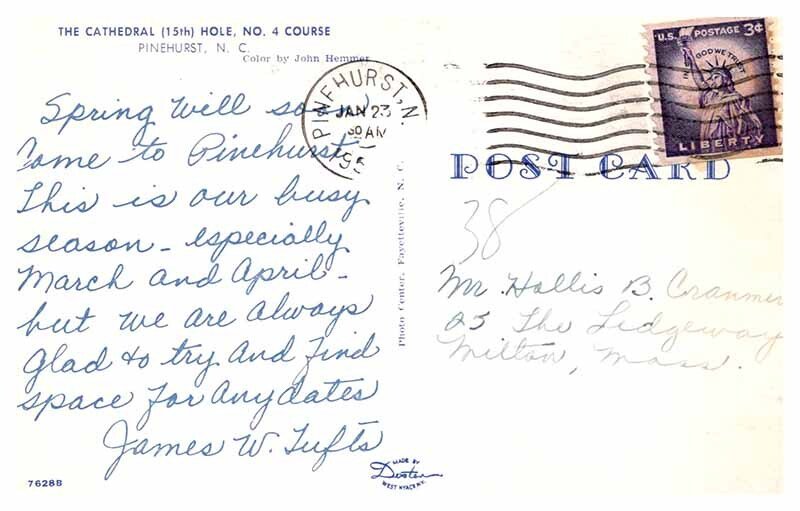 THE CATHEDRAL (15th) HOLE, NO. 4 COURSE
PINEHURST, N. C.
Color by John Hemmer
Spring will soon
Come to Pinehurst-
This is our busy
season - especially
March and April -
but we are always
glad to try and find
space for any dates
James W. Tufts
7628B
Photo Center, Fayetteville, N. C.
MADE BY
Dexter
WEST NYACK N.Y.
PINEHURST, N.
JAN 23
30 AM
195
U.S. POSTAGE 3¢
IN GOD WE TRUST
LIBERTY
POST CARD
38
Mr. Hollis B. Cranmer
25 The Ledgeway
Milton, Mass.